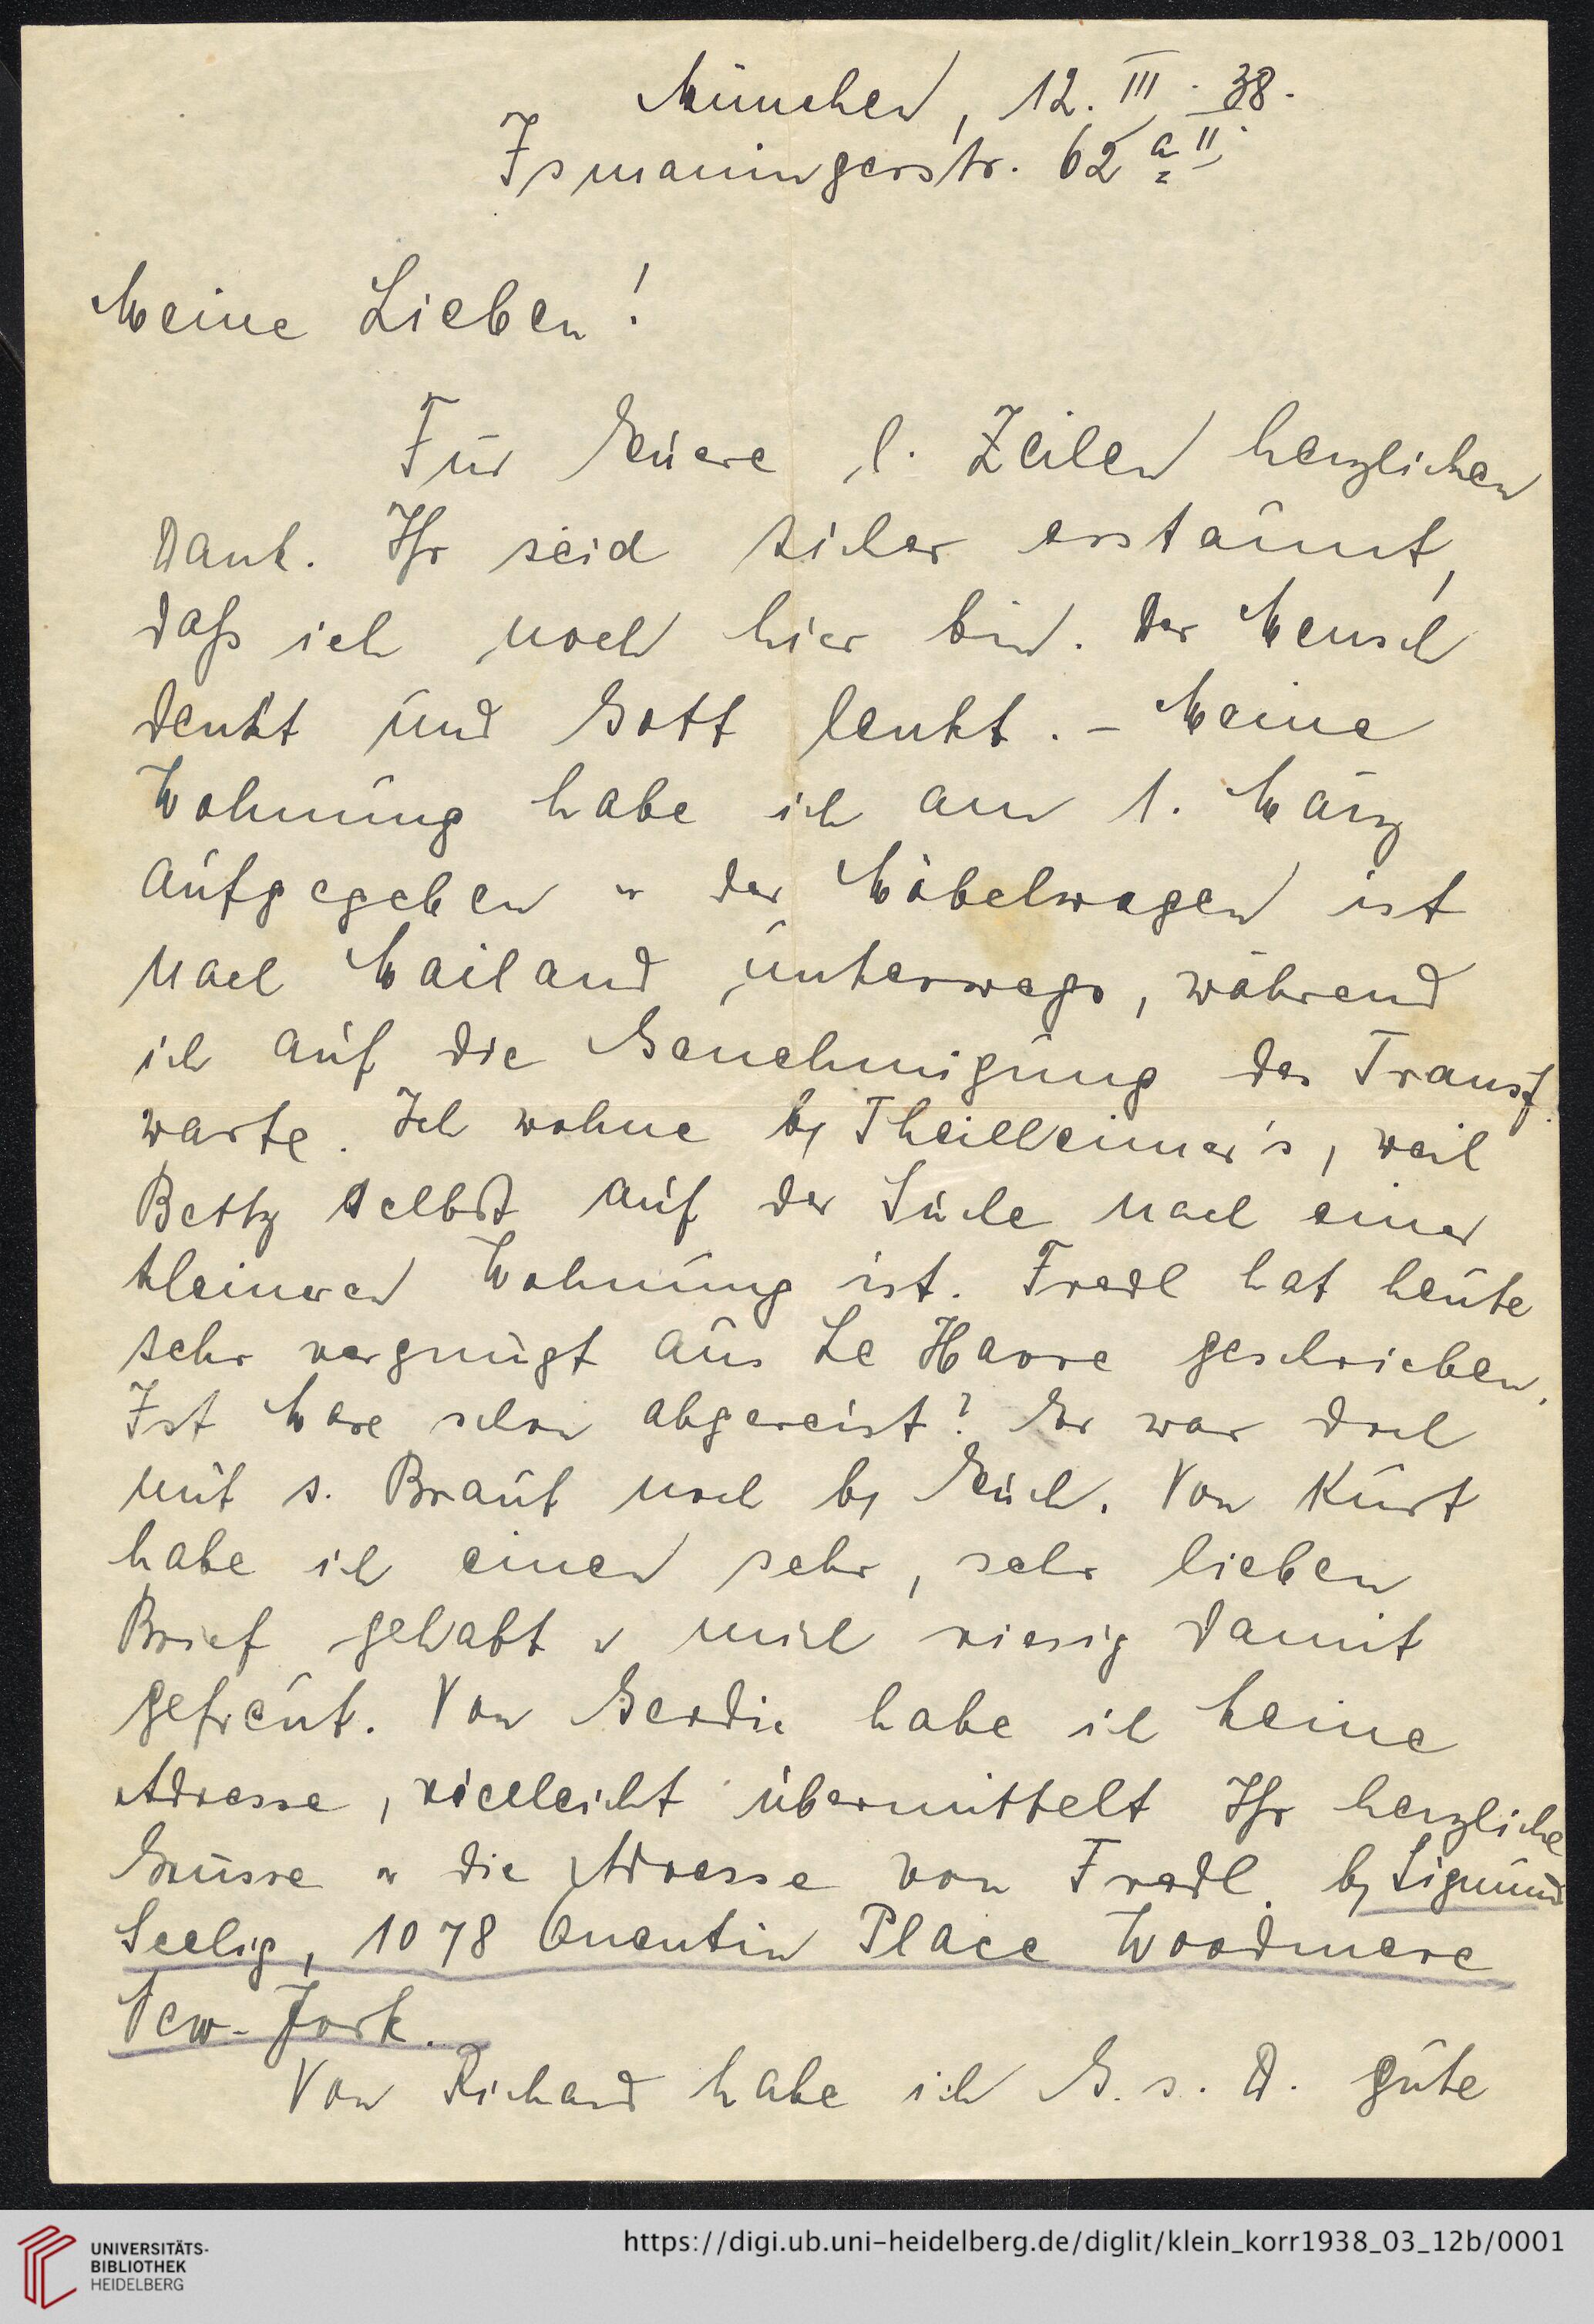 München, 12. III. 38.
Ismaningerstr. 62 a II.
Meine Lieben!
Für Euere l. Zeilen herzlichen
Dank. Ihr seid sicher erstaunt,
daß ich noch hier bin. Der Mensch
denkt und Gott lenkt. – Meine
Wohnung habe ich am 1. März
aufgegeben u der Möbelwagen ist
nach Mailand unterwegs, während
ich auf die Genehmigung des Transf.
warte. Ich wohne by Theilheimer's, weil
Betty selbst auf der Suche nach einer
kleineren Wohnung ist. Fredl hat heute
sehr vergnügt aus Le Havre geschrieben.
Ist Max schon abgereist? Er war doch
mit s. Braut noch by Euch. Von Kurt
habe ich einen sehr, sehr lieben
Brief gehabt u mich riesig damit
gefreut. Von Gerdie habe ich keine
Adresse, vielleicht übermittelt Ihr herzliche
Grüsse u die Adresse von Fredl. by Sigmund
Seelig, 1078 Quentin Place Woodmere
New-York.
Von Richard habe ich G. s. D. gute
UNIVERSITÄTS-
BIBLIOTHEK
HEIDELBERG
https://digi.ub.uni-heidelberg.de/diglit/klein_korr1938_03_12b/0001